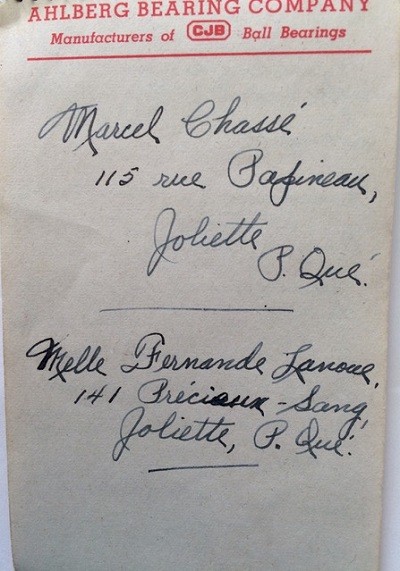 AHLBERG BEARING COMPANY
Manufacturers of CJB Ball Bearings
Marcel Chassé
115 rue Papineau,
Joliette
P. Qué.
Melle Fernande Lanoue,
141 Précieux-Sang,
Joliette, P. Qué.